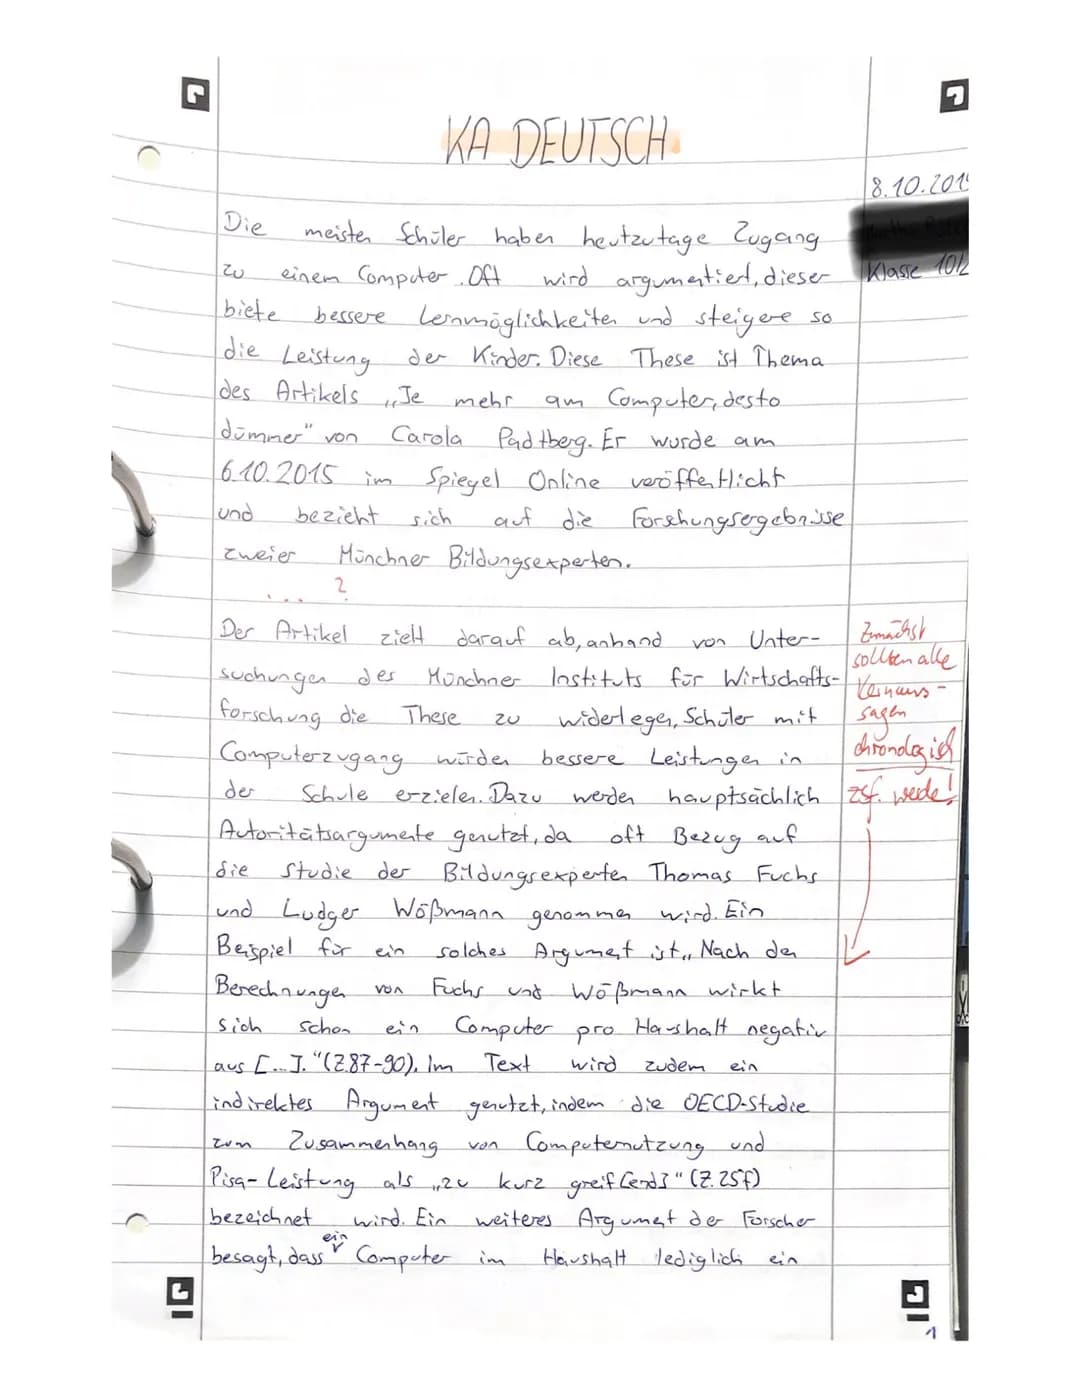 KA DEUTSCH
8.10.201
Klasse 10/2
Die meisten Schüler haben heutzutage Zugang
zu einem Computer. Oft wird argumentiert, dieser
biete bessere Lernmöglichkeiten und steigere so
die Leistung der Kinder. Diese These ist Thema
des Artikels „Je mehr am Computer, desto
dümmer" von Carola Padtberg. Er wurde am
6.10.2015 im Spiegel Online veröffentlicht
und bezieht sich auf die Forschungsergebnisse
zweier Münchner Bildungsexperten.
... ?
Der Artikel zielt darauf ab, anhand von Unter-
suchungen des Münchner Instituts für Wirtschafts-
forschung die These zu widerlegen, Schüler mit
Computerzugang würden bessere Leistungen in
der Schule erzielen. Dazu werden hauptsächlich
Autoritätsargumente genutzt, da oft Bezug auf
die Studie der Bildungsexperten Thomas Fuchs
und Ludger Wößmann genommen wird. Ein
Beispiel für ein solches Argument ist „Nach den
Berechnungen von Fuchs und Wößmann wirkt
sich schon ein Computer pro Haushalt negativ
aus [...]."(Z.87-90). Im Text wird zudem ein
indirektes Argument genutzt, indem die OECD-Studie
zum Zusammenhang von Computernutzung und
Pisa-Leistung als „zu kurz greif[end]" (Z.25f)
bezeichnet wird. Ein weiteres Argument der Forscher
besagt, dass ein Computer im Haushalt lediglich ein
Zunächst
sollten alle
Kernaus-
sagen
chronologisch
zsf. werde!
1